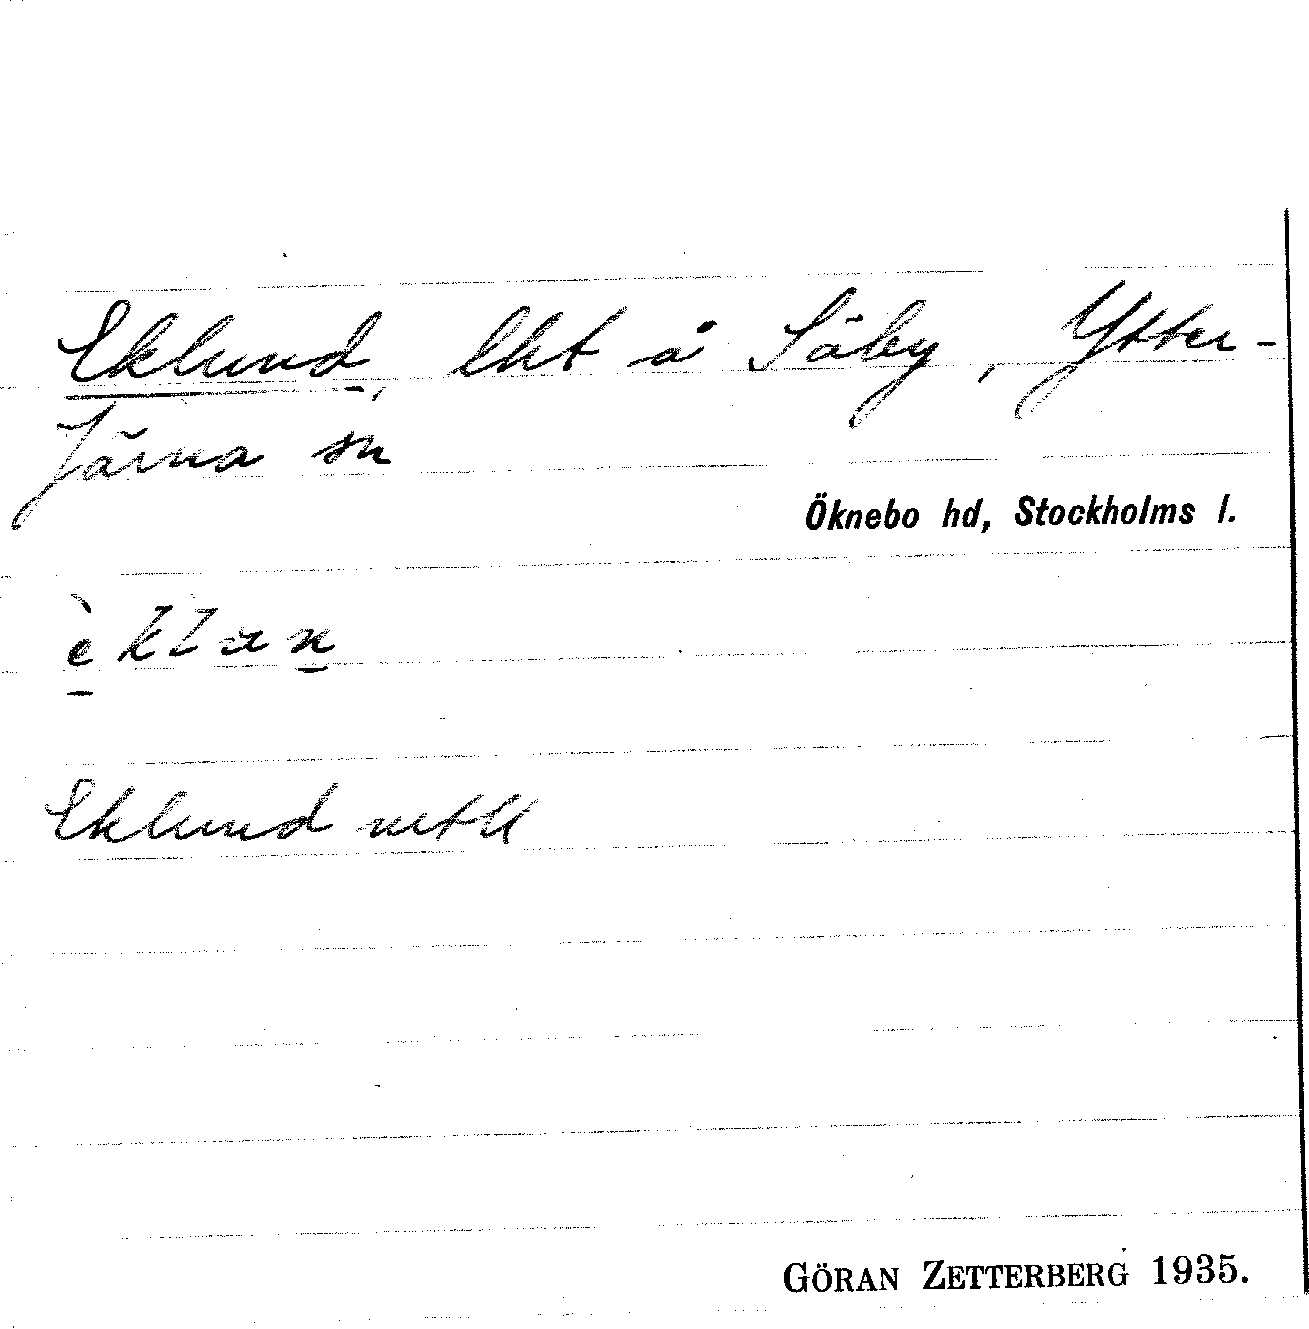 Eklund, lht å Säby, Ytter-
Järna sn
Öknebo hd, Stockholms l.
Eklund mtU
GÖRAN ZETTERBERG 1935.